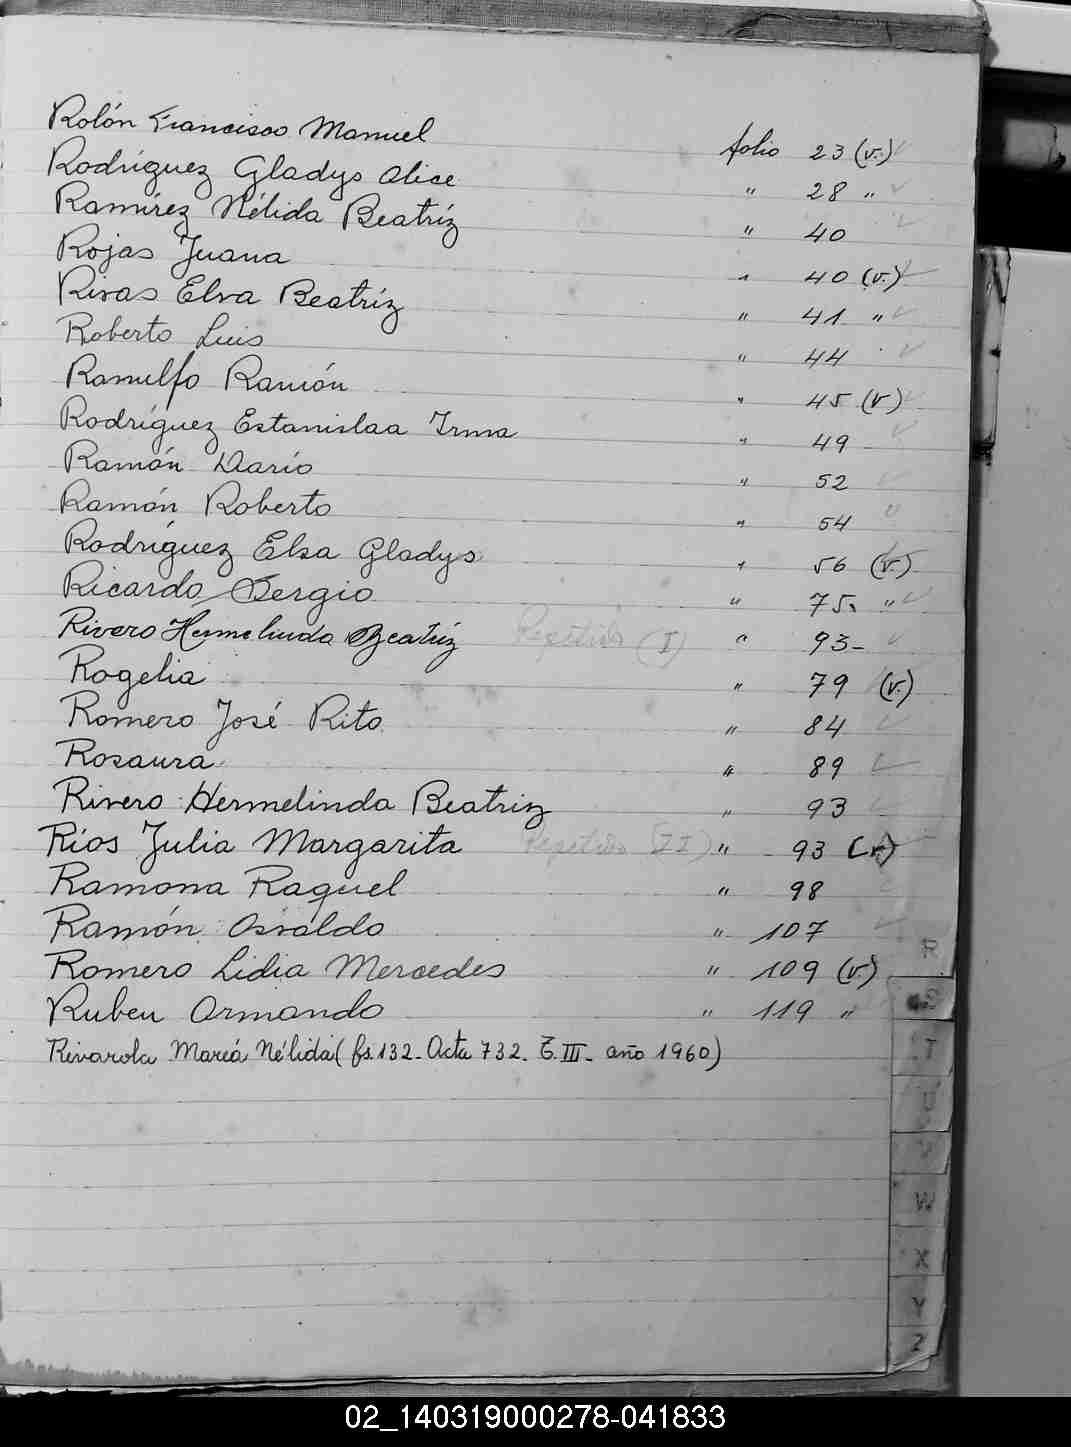 Rolón Francisco Manuel folio 23 (v.)
Rodríguez Gladys Alice " 28 "
Ramírez Nélida Beatríz " 40
Rojas Juana " 40 (v.)
Rivas Elva Beatríz " 41 "
Roberto Luis " 44
Ramulfo Ramón " 45 (v)
Rodríguez Estanislaa Irma " 49
Ramón Darío " 52
Ramón Roberto " 54
Rodríguez Elsa Gladys " 56 (v.)
Ricardo Sergio " 75. "
Rivero Hermelinda Beatríz Repetido (I) " 93-
Rogelia " 79 (v.)
Romero José Rito " 84
Rosaura " 89
Rivero Hermelinda Beatriz " 93
Ríos Julia Margarita Repetido (II) " 93 (v.)
Ramona Raquel " 98
Ramón Osvaldo " 107
Romero Lidia Mercedes " 109 (v.)
Ruben Armando " 119 "
Rivarola María Nélida (fs. 132- Acta 732. T. III- año 1960)
R
S
T
U
V
W
X
Y
Z
02_140319000278-041833